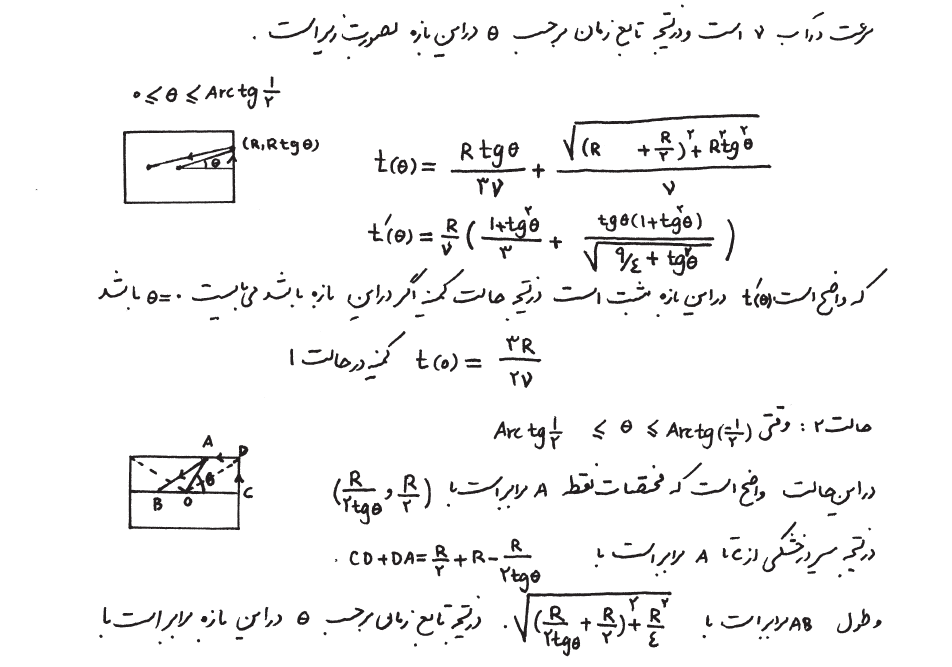 سرعت در آب v است و در نتیجه تابع زمان برحسب θ در این بازه بصورت زیر است .
۰ ≤ θ ≤ Arc tg ۱/۲
(R, R tg θ)
θ
t(θ) = R tgθ / ۳v + √((R + R/۲)^۲ + R^۲ tg^۲θ) / v
t'(θ) = R/v ( (۱+tg^۲θ)/۳ + tgθ(۱+tg^۲θ) / √(۹/٤ + tg^۲θ) )
که واضح است t'(θ) در این بازه مثبت است در نتیجه حالت کمینه اگر در این بازه باشد می‌بایست θ=۰ باشد
t(0) = ۳R/۲v کمینه در حالت ۱
حالت ۲ : وقتی Arc tg ۱/۲ ≤ θ ≤ Arc tg (-۱/۲)
A D
θ
B O C
در این حالت واضح است که مختصات نقطه A برابر است با (R/۲tgθ , R/۲)
در نتیجه مسیر خشکی از C تا A برابر است با CD + DA = R/۲ + R - R/۲tgθ .
و طول AB برابر است با √((R/۲tgθ + R/۲)^۲ + R^۲/٤) . در نتیجه تابع زمانی برحسب θ در این بازه برابر است با